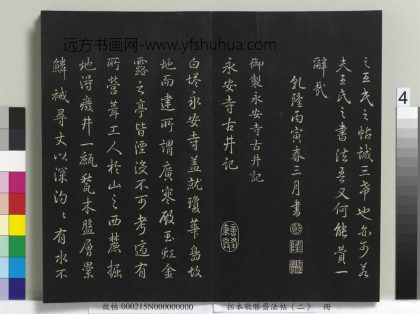 远方书画网-www.yfshuhua.com
之王氏之帖誠三希也亦可若
夫王氏之書法吾又何能贊一
辭哉
乾隆丙寅春三月書
御製永安寺古井記
永安寺古井記
白塔永安寺蓋就瓊華島故
地而建所謂廣寒殿玉虹金
露之亭皆湮没不可考適有
所營葺工人於山之西麓掘
地得廢井一甃甓木盤層累
鱗椷尋丈以深沟沟有水不
4
故帖 000215N000000000 拓本敬勝齋法帖（二） 冊